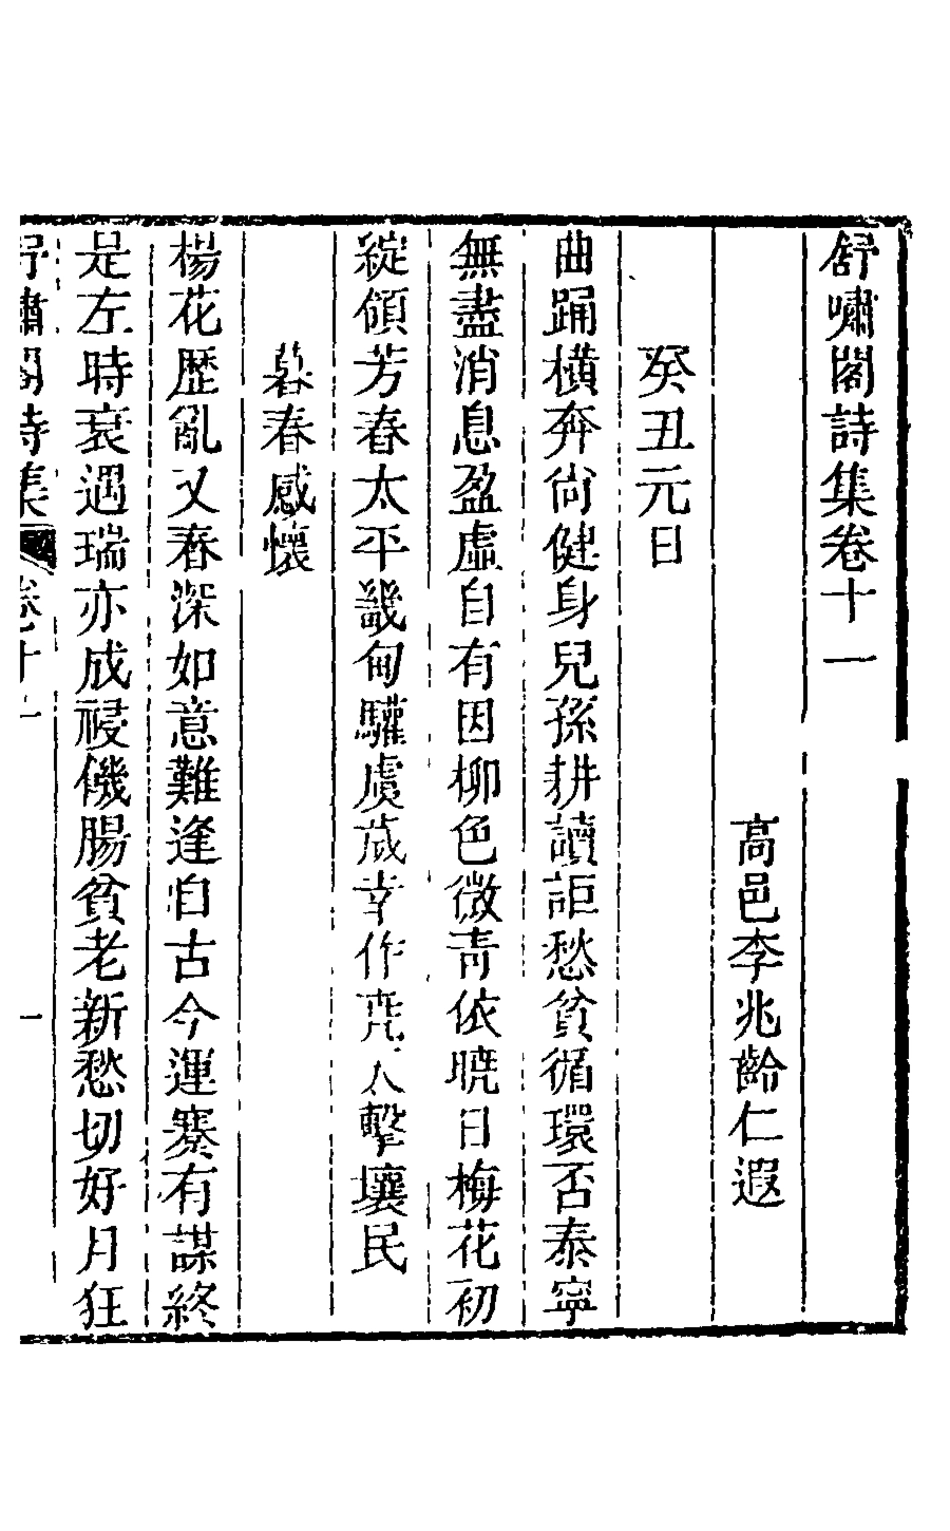 舒嘯閣詩集卷十一
高邑李兆齡仁遐
癸丑元日
曲踊橫奔尙健身兒孫耕讀詎愁貧循環否泰寧
無盡消息盈虛自有因柳色微靑依曉日梅花初
綻領芳春太平畿甸驩虞歲幸作堯人擊壤民
暮春感懷
楊花歷亂又春深如意難逢自古今運蹇有謀終
是左時衰遇瑞亦成祲饑腸貧老新愁切好月狂
舒嘯閣詩集 卷十一 一